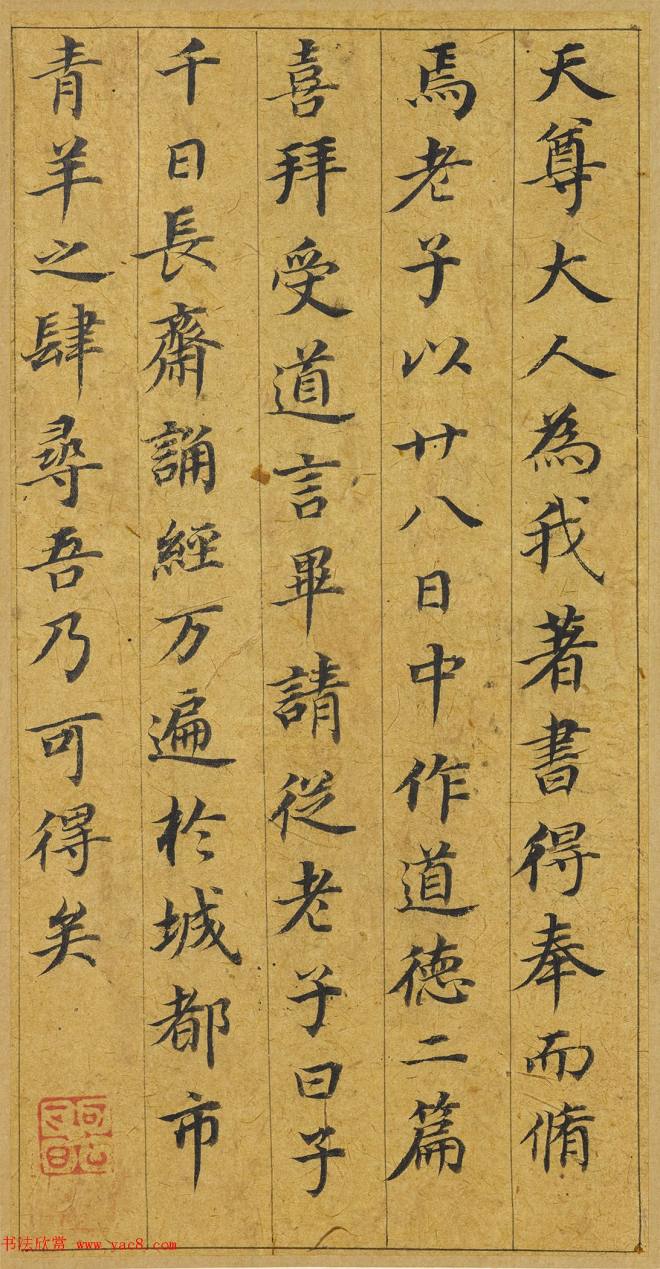 天尊大人為我著書得奉而脩
焉老子以廿八日中作道德二篇
喜拜受道言畢請從老子曰子
千日長齋誦經万遍於城都市
青羊之肆尋吾乃可得矣
书法欣赏 www.yac8.com